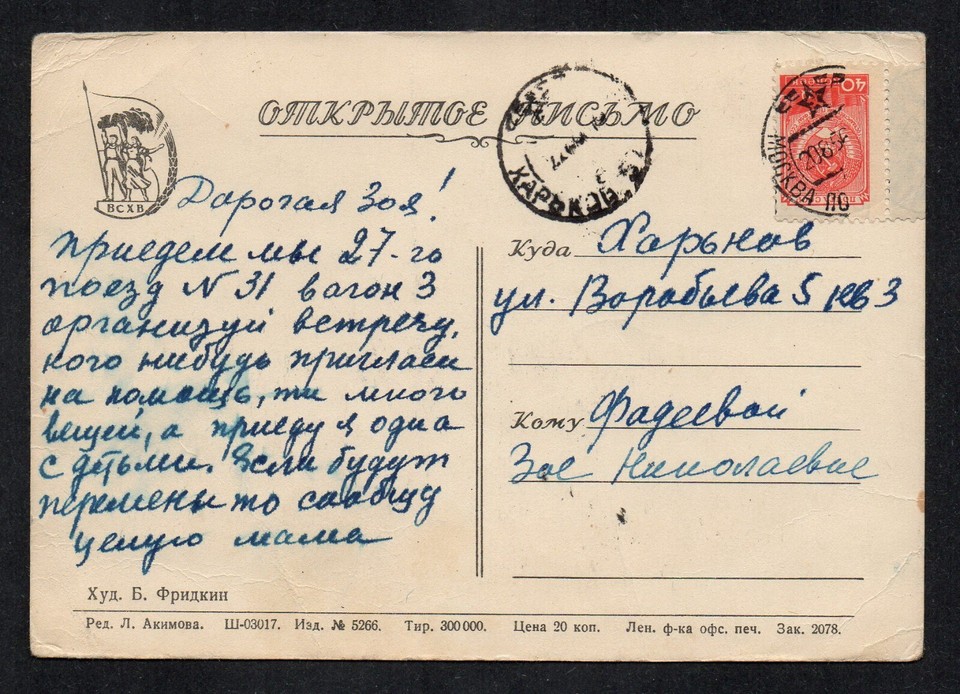 ОТКРЫТОЕ ПИСЬМО
ВСХВ
Дорогая Зоя!
приедем мы 27-го
поезд N 31 вагон 3
организуй встречу,
кого нибудь пригласи
на помощь, тк много
вещей, а приеду я одна
с детьми. Если будут
перемены то сообщу
целую мама
ХАРЬКОВ
40
МОСКВА ПО
Куда Харьков
ул. Воробьева 5 кв 3
Кому Фадеевой
Зое Николаевне
Худ. Б. Фридкин
Ред. Л. Акимова. Ш-03017. Изд. № 5266. Тир. 300 000. Цена 20 коп. Лен. ф-ка офс. печ. Зак. 2078.